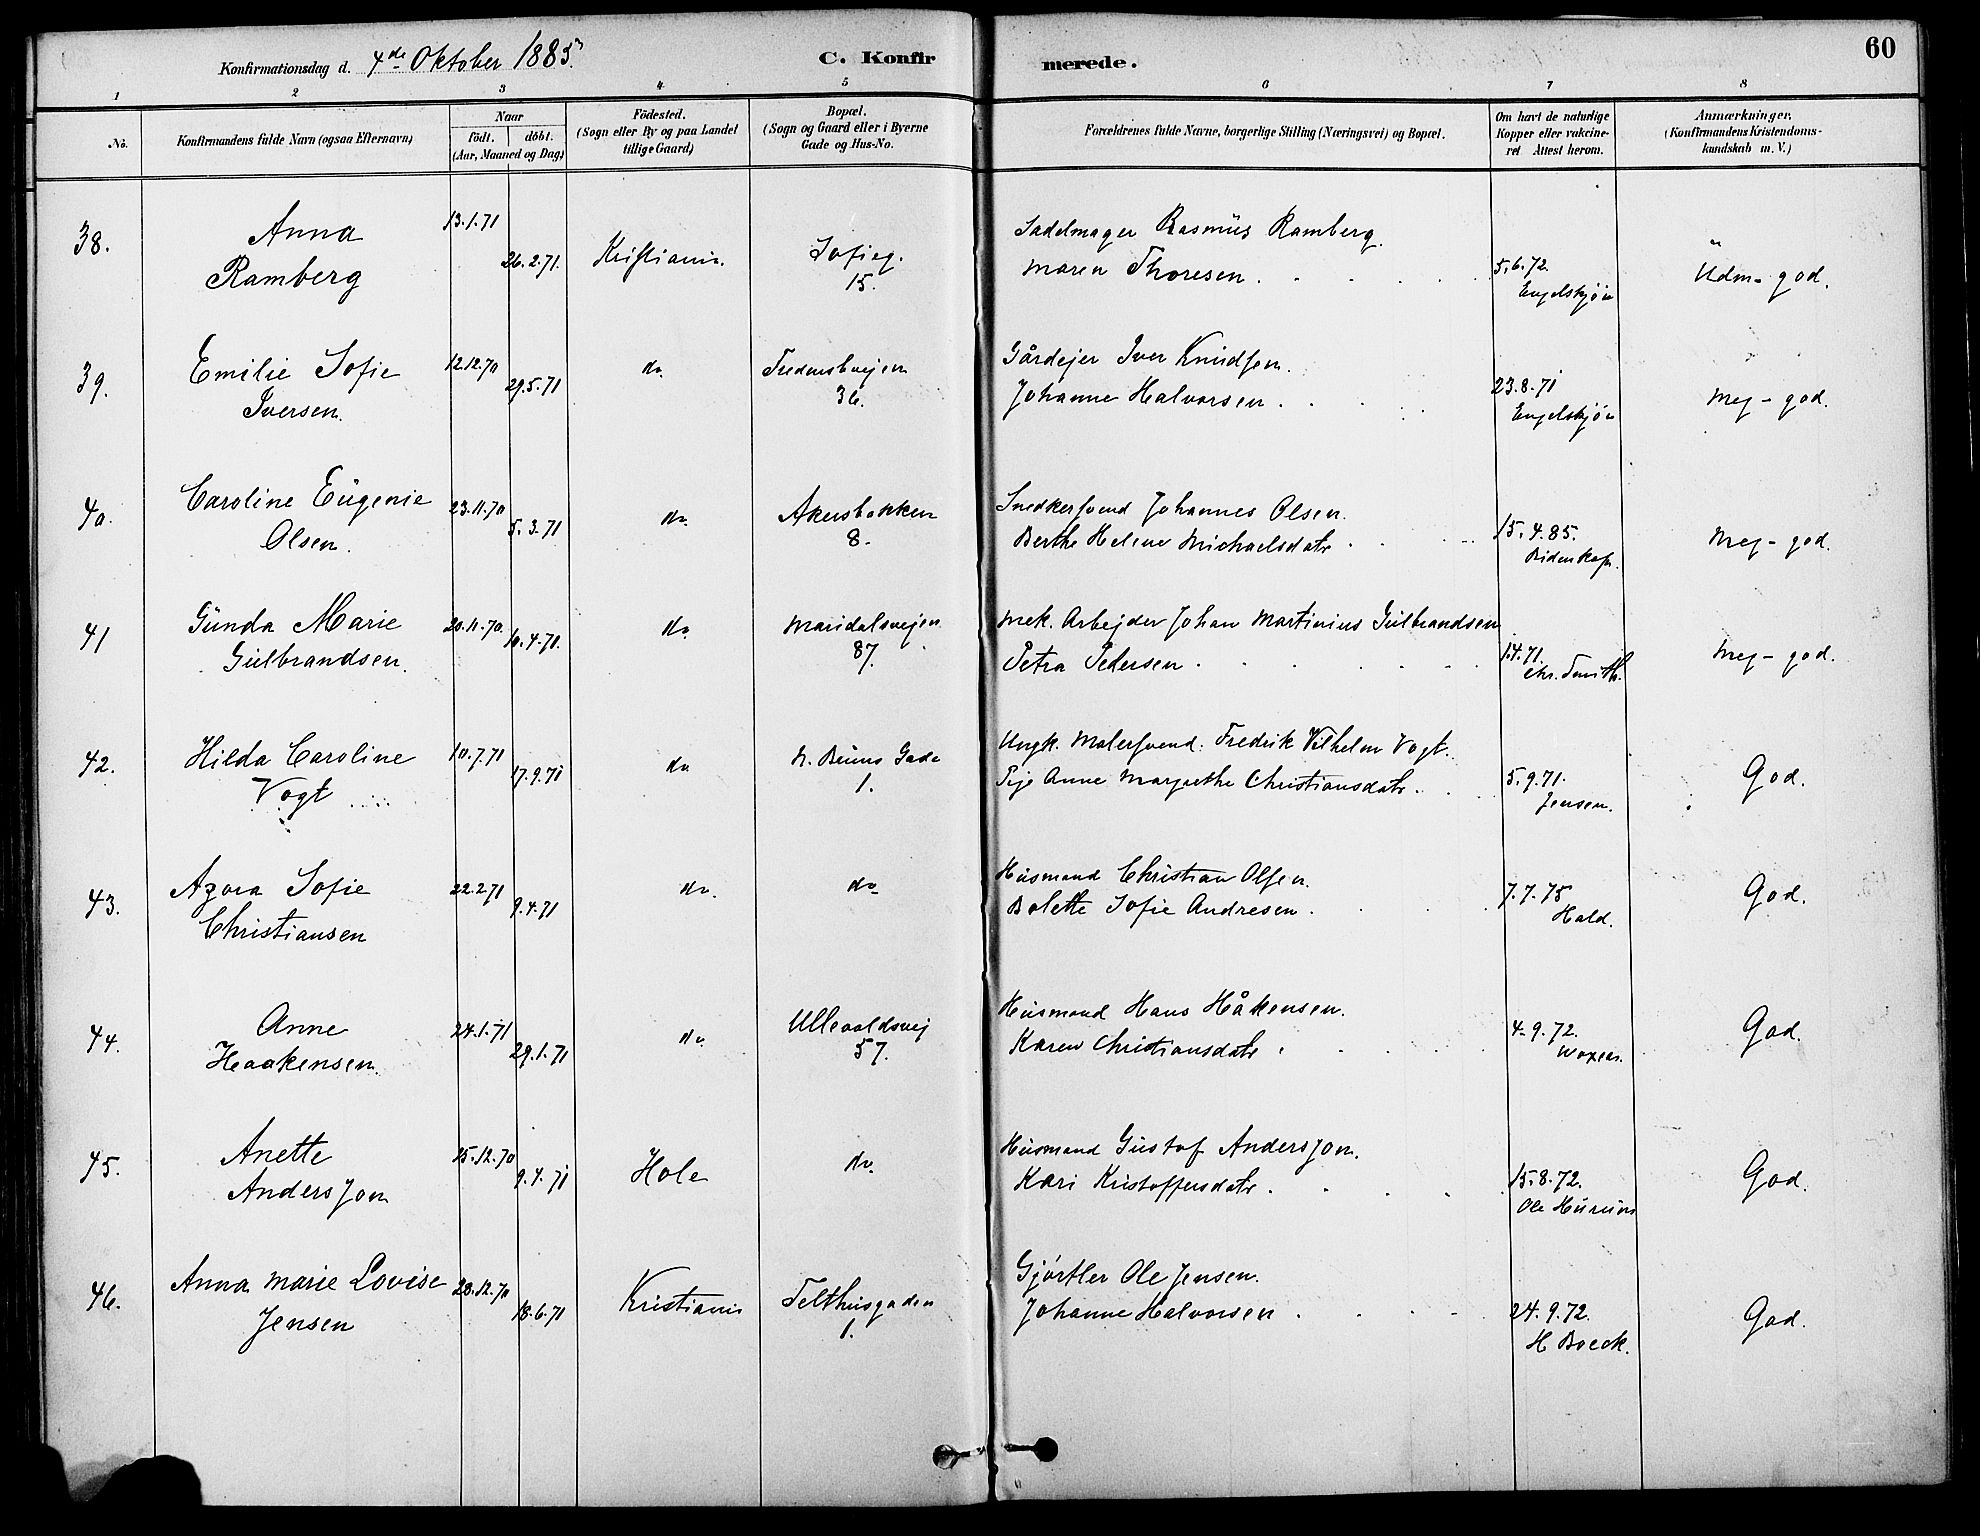 Konfirmationsdag d. 4de Oktober 1885.
C. Konfirmerede.
60
1 2 3 4 5 6 7 8
No.
Konfirmandens fulde Navn (ogsaa Efternavn)
Naar
født. døbt.
(Aar, Maaned og Dag)
Födested.
(Sogn eller By og paa Landet
tillige Gaard)
Bopæl.
(Sogn og Gaard eller i Byerne
Gade og Hus-No.
Forældrenes fulde Navne, borgerlige Stilling (Næringsvei) og Bopæl.
Om havt de naturlige
Kopper eller vakcine-
ret Attest herom.
Anmærkninger,
(Konfirmandens Kristendoms-
kundskab m. V.)
38. Anna 13.1.71 Sadelmager Rasmus Ramberg.
Ramberg 26.2.71. Kristiania. Sofieg. Maren Thoresen. 5.6.72. Udm- god.
15. Engelskjøn
39. Emilie Sofie 12.12.70 do. Gårdejer Iver Knudsen.
Iversen. 29.5.71 36. Johanne Halvorsen. 23.8.71 Meg- god.
Engelskjøn
40. Caroline Eugenie 23.11.70 do. Akersbakken Snedkersvend Johannes Olsen.
Olsen. 5.3.71 8. Berthe Helene Michaelsdatr 15.4.85. Meg- god.
Bidenkap.
41 Gunda Marie 20.11.70. do. Maridalsvejen Mek. Arbejder Johan Martinius Gulbrandsen
Gulbrandsen. 10.4.71. 87. Petra Pedersen. 1.4.71. Meg- god.
Chr. Smith.
42. Hilda Caroline 10.7.71 do. N. Bruns Gade Ungk. Malersvend: Fredrik Vilhelm Vogt.
Vogt 17.9.71 1. Pige Anne Margrethe Christiansdatr. 5.9.71. God.
Jensen.
43. Azora Sofie 22.2.71 do. do. Husmand Christian Olsen.
Christiansen 9.4.71 Bolette Sofie Andresen. 7.7.75 God.
Hald.
44. Anne 24.1.71 do. Ullevoldsvej Husmand Hans Håkensen.
Haakensen. 29.1.71 57. Karen Christiansdatr. 4.9.72. God.
45. Anette 15.12.70 Hole do. Husmand Gustaf Andersson.
Andersson 9.4.71 Kari Kristoffersdatr. 15.8.72. God.
Ole Hurum
46. Anna Marie Lovise 28.12.70 Kristiania Telthusgaden Gjørtler Ole Jensen.
Jensen 18.6.71 1. Johanne Halvorsen 24.9.72. God.
H Boeck.